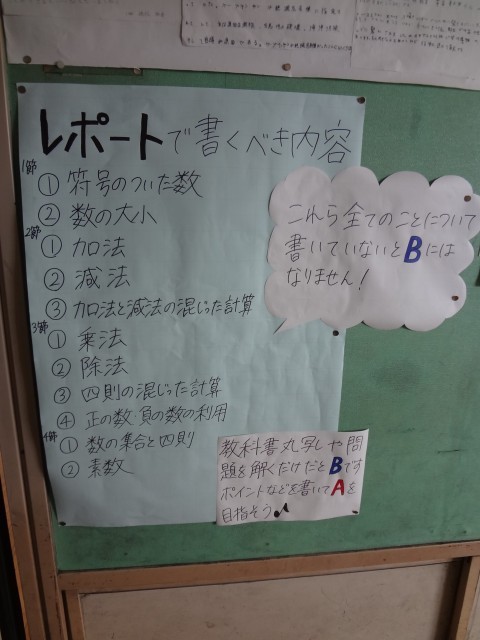 レポートで書くべき内容
1節
① 符号のついた数
② 数の大小
2節
① 加法
② 減法
③ 加法と減法の混じった計算
3節
① 乗法
② 除法
③ 四則の混じった計算
④ 正の数・負の数の利用
4節
① 数の集合と四則
② 素数
これら全てのことについて
書いていないとBには
なりません!
教科書丸写しや問
題を解くだけだとBです
ポイントなどを書いてAを
目指そう♪